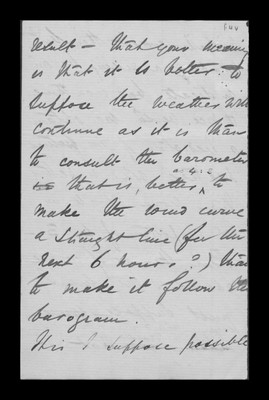 result — that your meaning
is that it is better to
suppose the weather will
continue as it is than
to consult the barometer
that is, better, to
make the wind curve
a straight line (for the
next 6 hours?) than
to make it follow the
barogram.
This I suppose possible